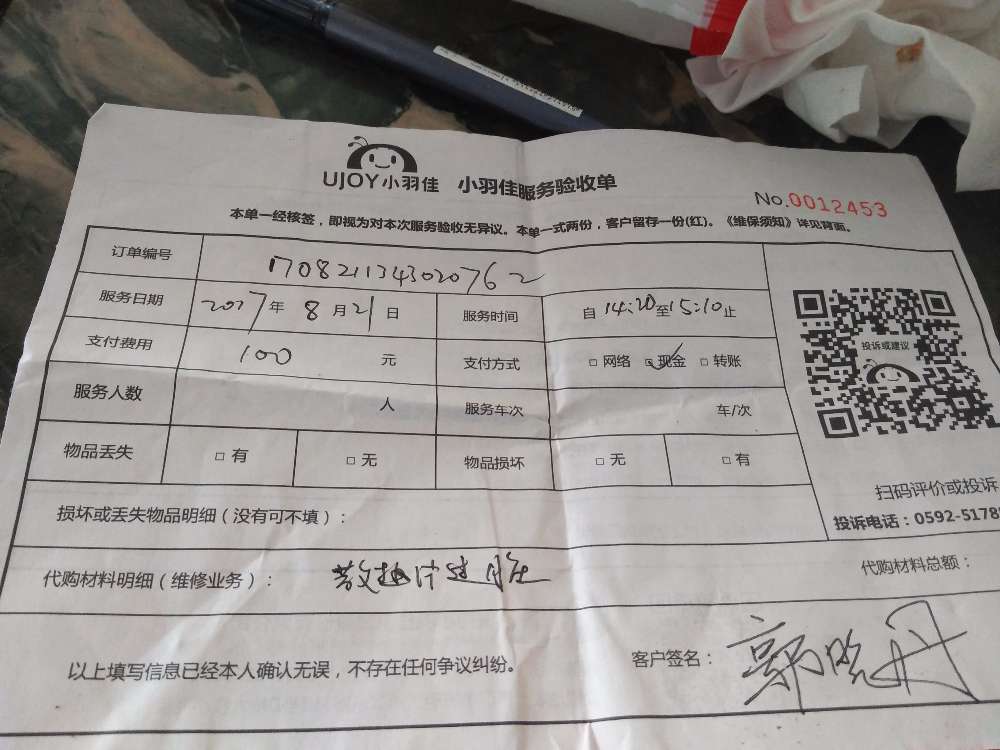 UJOY小羽佳 小羽佳服务验收单
No.0012453
本单一经核签，即视为对本次服务验收无异议。本单一式两份，客户留存一份(红)。《维保须知》详见背面。
订单编号 1708211343020762
服务日期 2017年 8月21日 服务时间 自14:20至15:10止
支付费用 100 元 支付方式 □ 网络 □ 现金 □ 转账
服务人数 人 服务车次 车/次
物品丢失 □ 有 □ 无 物品损坏 □ 无 □ 有
投诉或建议
扫码评价或投诉
投诉电话：0592-5178
损坏或丢失物品明细（没有可不填）：
代购材料明细（维修业务）： 代购材料总额：
以上填写信息已经本人确认无误，不存在任何争议纠纷。 客户签名： 郭晓丹